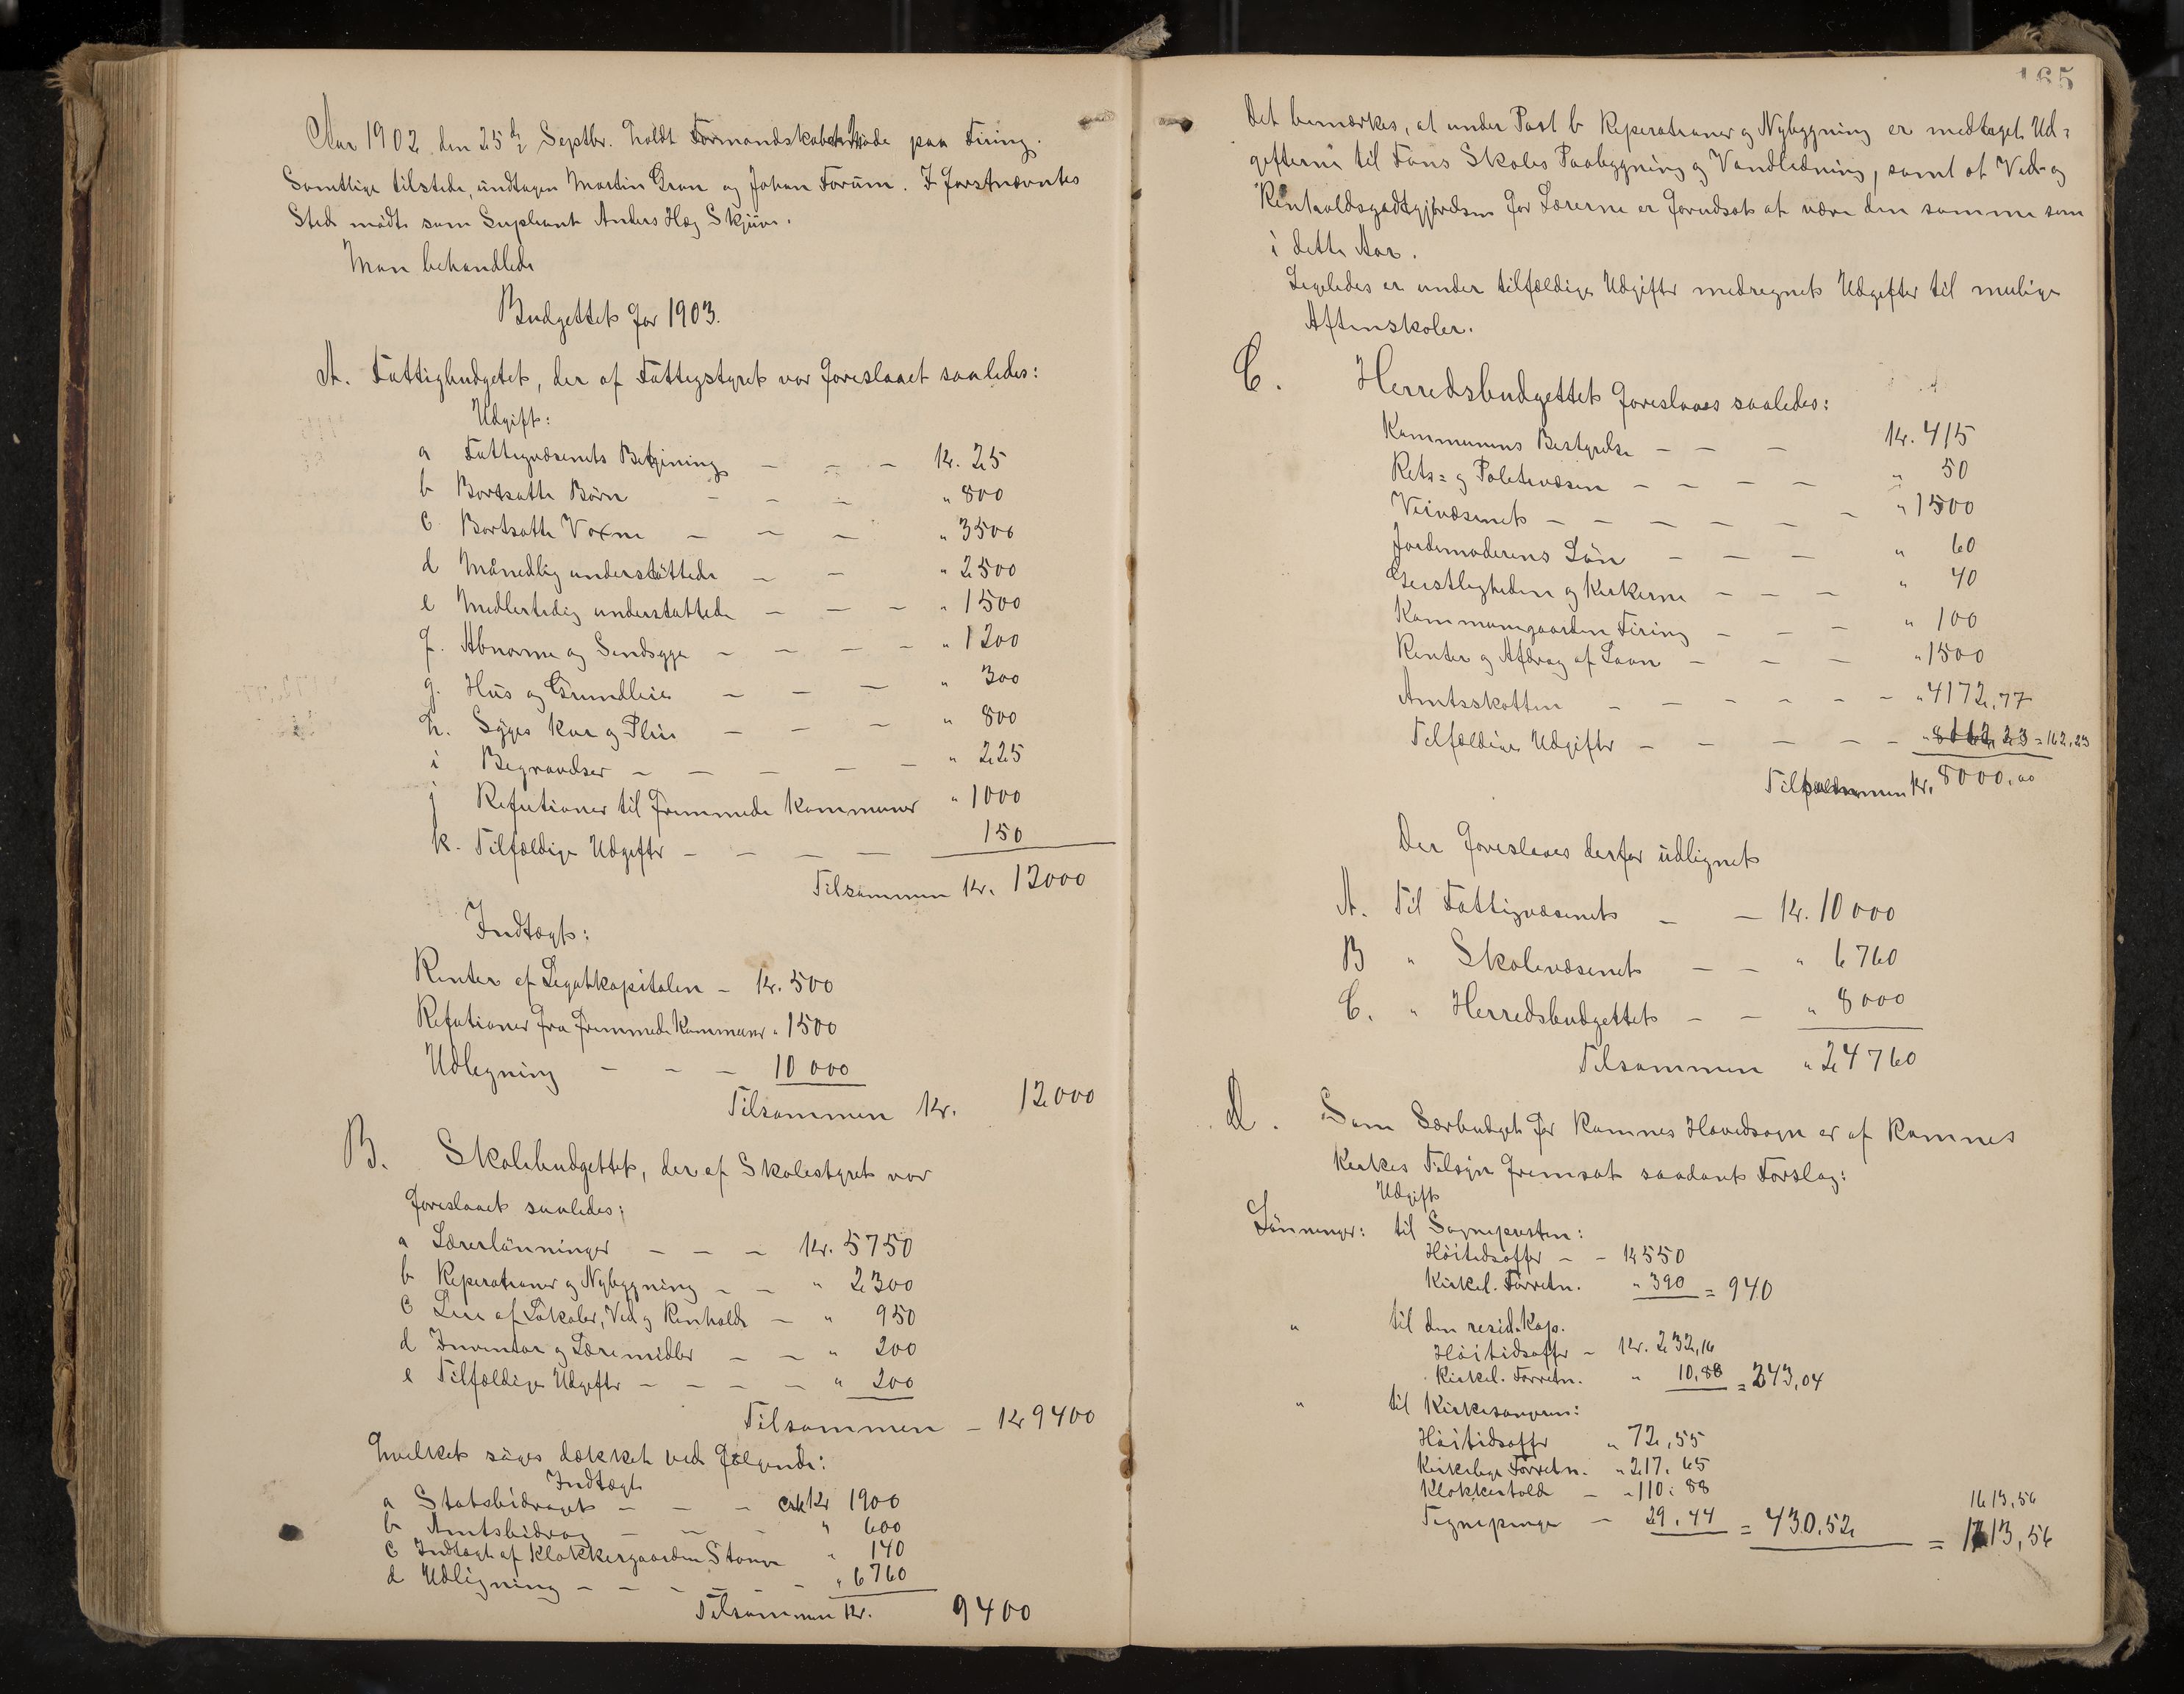 Aar 1902 den 25de Septbr. holdt Formandskabet Møde paa Firing.
Samtlige tilstede, undtagen Martin Gran og Johan Forum. I Førstnævntes
Sted mødte som Supleant Anders Hæg Skjüve.
Man behandlede
Budgettet for 1903.
A. Fattigbudgetet, der af Fattigstyret var foreslaaet saaledes:
Udgift:
a Fattigvæsenets Betjening – – – Kr. 25
b Bortsatte Børn – – – " 800
c Bortsatte Voxne – – – " 3500
d Månedlig understøttede – – " 2500
e Medlertidig understøttede – – – " 1500
f. Abnorme og Sindsyge – – – – " 1200
g. Hus og Grundleie – – – " 300
h. Syges Kur og Pleie – – – " 800
i Begravelser – – – – – " 225
j Refutioner til fremmede Kommuner " 1000
k. Tilfældige Udgifter – – – – 150
Tilsammen Kr. 12000
Indtægt:
Renter af Legatkapitalen – Kr. 500
Refutioner fra fremmede Kommuner " 1500
Udligning – – – 10 000
Tilsammen Kr. 12000
B. Skolebudgettet, der af Skolestyret var
foreslaaet saaledes;
a Lærerlønninger – – – Kr. 5750
b Reperationer og Nybygning – – " 2300
c Leie af Lokaler, Ved og Renhold – " 950
d Inventar og Læremidler – – " 200
e Tilfældige Udgifter – – – – " 200
Tilsammen – Kr 9400
hvilket søges dækket ved følgende:
Indtægt
a Statsbidraget – – – Kr 1900
b Amtsbidrag – – – " 600
c Indtægt af Klokkergaarden Stange " 140
d Udligning – – – – – – " 6760
Tilsammen Kr. 9400
165
Det bemærkes, at under Post b Reperationer og Nybygning er medtaget Ud=
gifterne til Fons Skoles Paabygning og Vandledning, samt at Ved- og
Renholdsgodtgjørelsen for Lærerne er forudsat at være den samme som
i dette Aar.
Ligeledes er under tilfældige Udgifter medregnet Udgifter til mulige
Aftenskoler.
C. Herredsbudgettet foreslaaes saaledes:
Kommunens Bestyrelse – – – Kr. 415
Rets= og Politivæsen – – – – " 50
Veivæsenet – – – – – – " 1500
Jordemoderens Løn – – – " 60
Geistligheden og Kirkerne – – – " 40
Kommunegaarden Firing – – – " 100
Renter og Afdrag af Laan – – – " 1500
Amtsskatten – – – – – – " 4172,77
Tilfældige Udgifter – – – – – " 162,23 = 162,23
Tilsammen Kr. 8000,00
Der foreslaaes derfor udlignet
A. Til Fattigvæsenet – – Kr. 10 000
B " Skolevæsenet – – " 6760
C. " Herredsbudgettet – – " 8000
Tilsammen " 24760
d. Som Særbudget for Ramnes Hovedsogn er af Ramnes
Kirkes Tilsyn fremsat saadant Forslag:
Udgift
Lønninger: til Sognepresten:
Høitidsoffer – – Kr 550
Kirkel. Forretn. " 390 = 940
" til den resid. Kap.
Høitidsoffer – Kr. 232,16
Kirkel. Forretn. " 10,88 = 243,04
" til Kirkesangeren:
Høitidsoffer " 72,55
Kirkelige Forretn. " 217,65
Klokkertold – " 110,88
Tegnepenge – 29,44 = 430,52 = 1613,56
1613,56